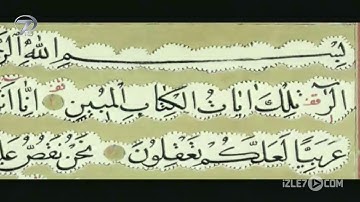 7
بِسْمِ اللّٰهِ الرَّ
الٓرٰ تِلْكَ اٰيَاتُ الْكِتَابِ الْمُبينِ اِنَّا اَنْ
عَرَبِيًّا لَعَلَّكُمْ تَعْقِلُونَ نَحْنُ نَقُصُّ عَلَ
iZLE7.COM